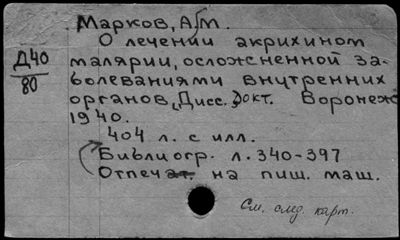 Марков, А. М.
О лечении акрихином
Д40
80
малярии, осложненной за-
болеваниями внутренних
органов, Дисс. Докт. Воронеж
1940.
404 л. с илл.
Библиогр. л. 340-397
Отпечат. на пиш. маш.
См. след. карт.